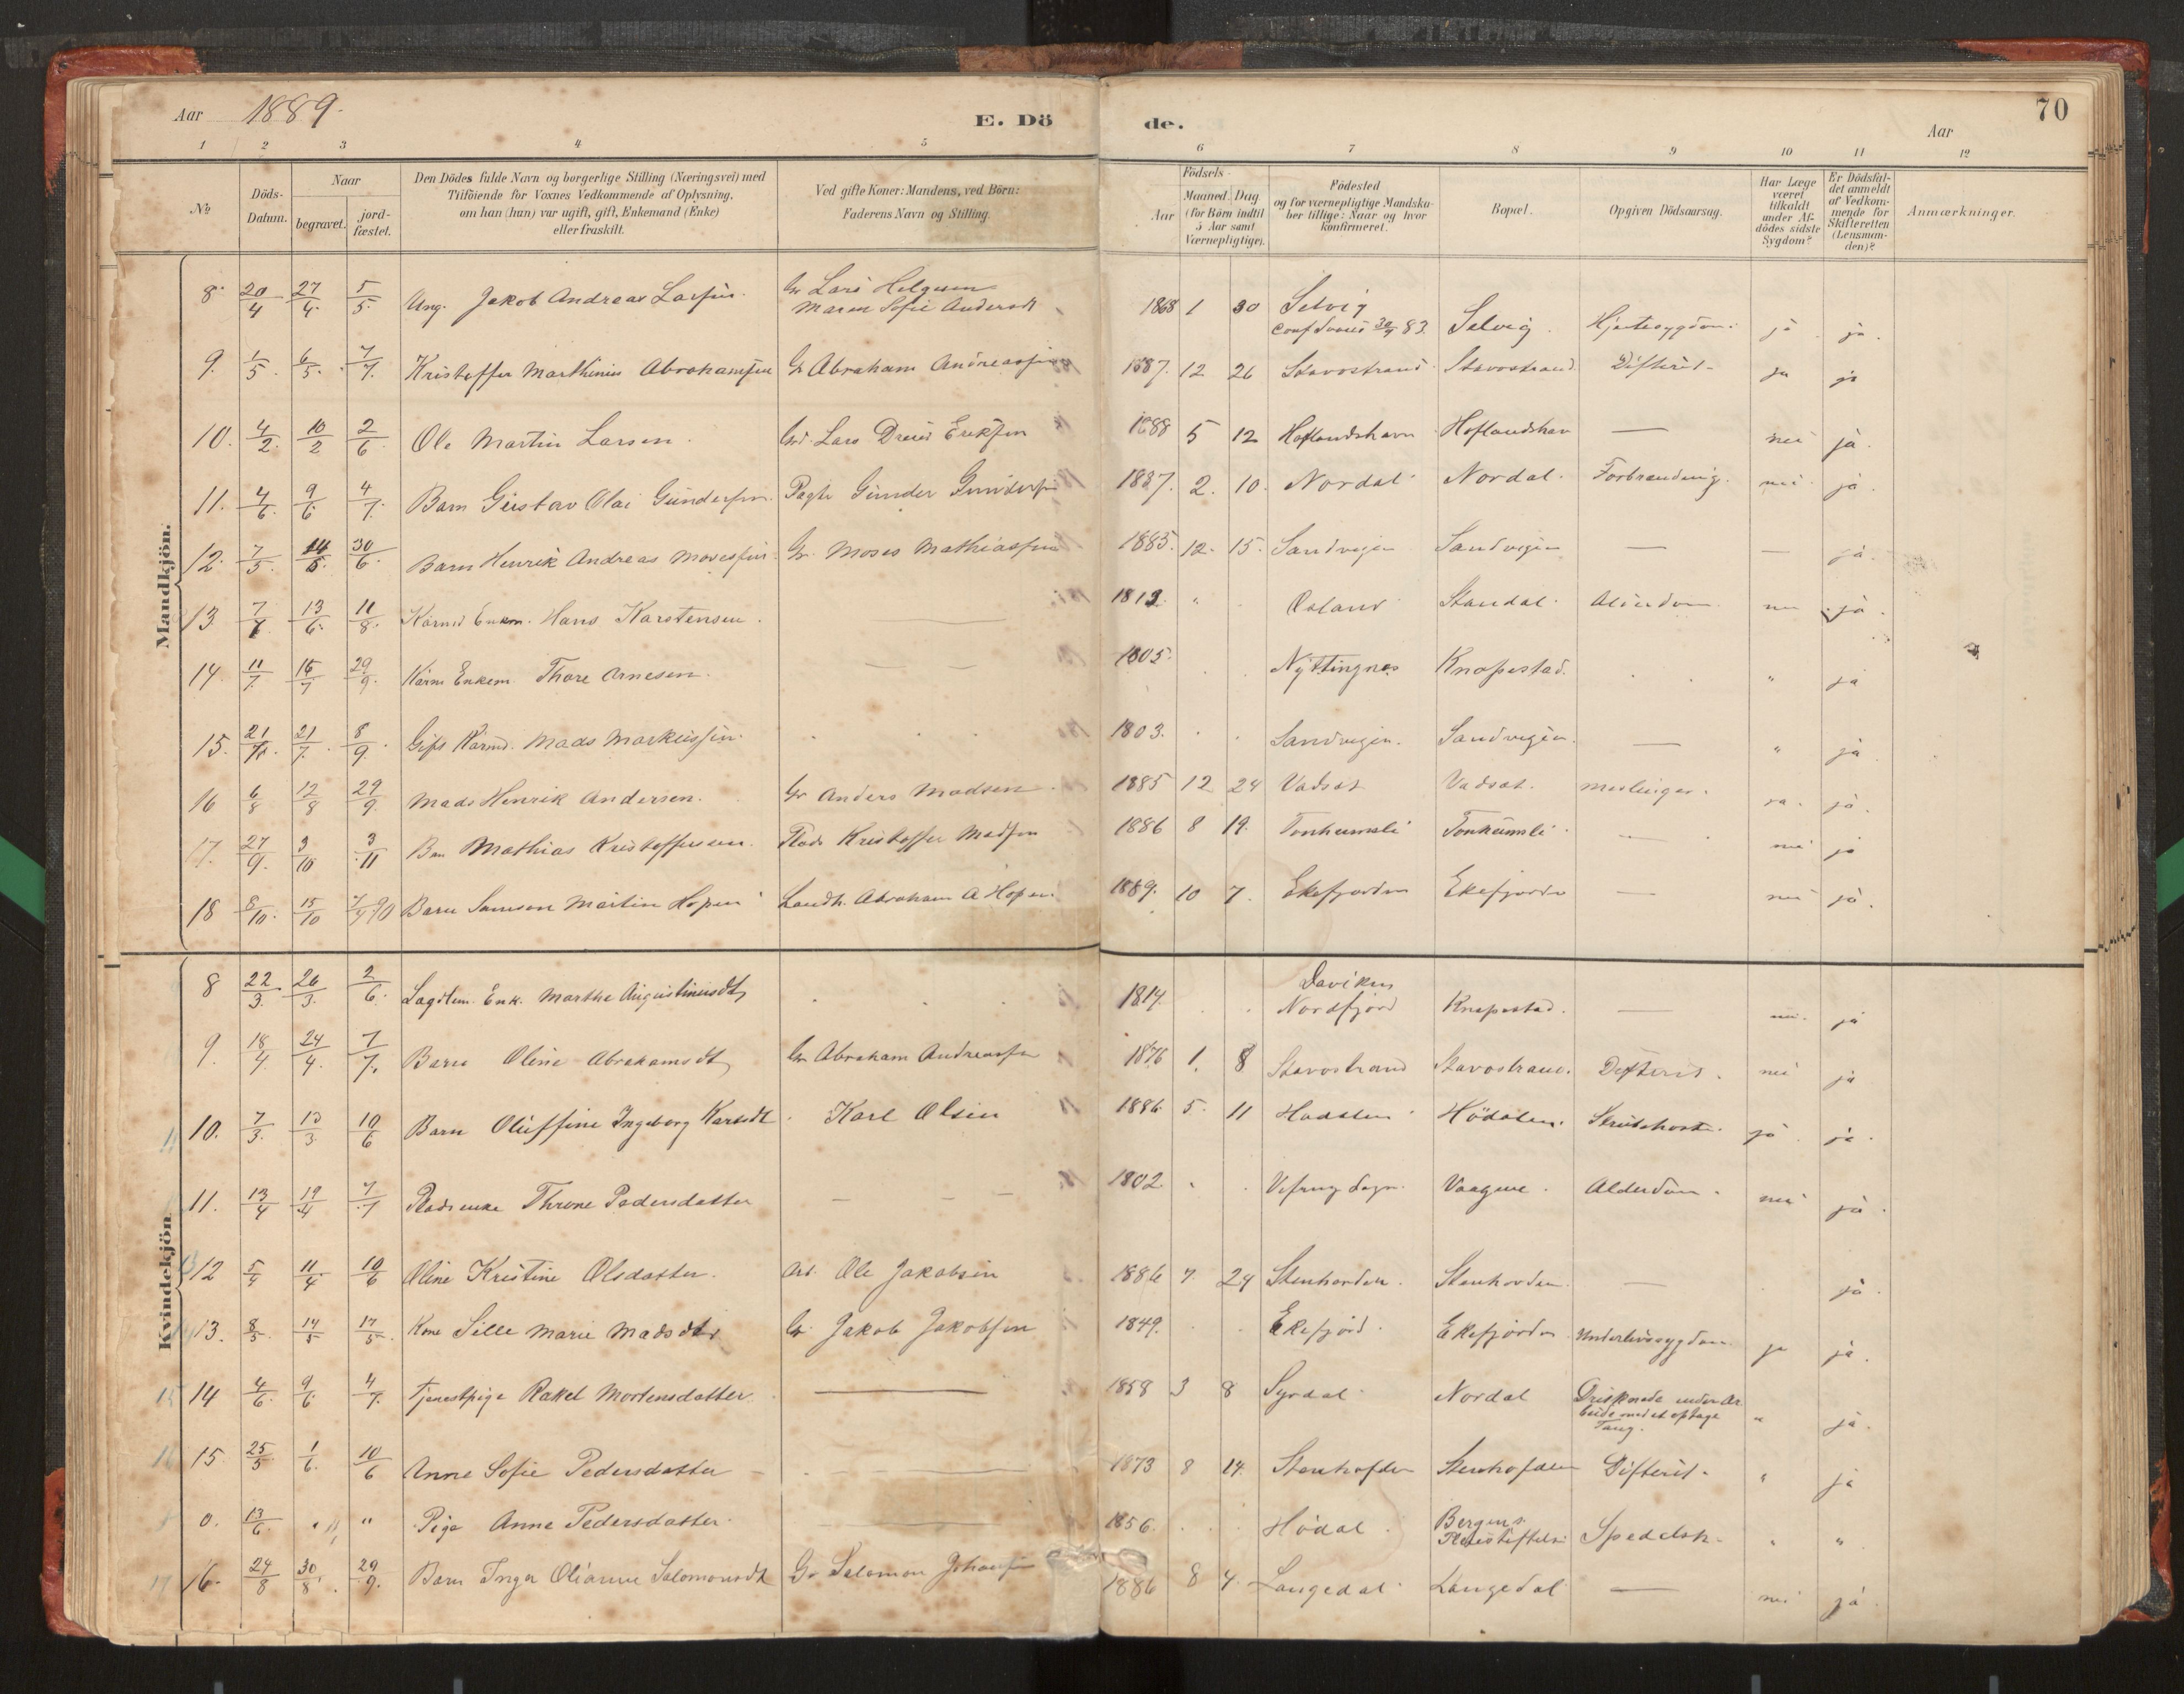 Aar 1889.
E. Dö de.
Aar
70
1 2 3 4 5 6 7 8 9 10 11 12
No
Döds-Datum.
Naar
begravet.
jord-fæstet.
Den Dödes fulde Navn og borgerlige Stilling (Næringsvei) med
Tilföiende for Voxnes Vedkommende af Oplysning,
om han (hun) var ugift, gift, Enkemand (Enke)
eller fraskilt.
Ved gifte Koner: Mandens, ved Börn:
Faderens Navn og Stilling.
Födsels-
Aar
Maaned. Dag
(for Börn indtil
5 Aar samt
Værnepligtige).
Födested
og for værnepligtige Mandska-
ber tillige: Naar og hvor
konfirmeret.
Bopæl.
Opgiven Dödsaarsag.
Har Læge
været
tilkaldt
under Af-
dödes sidste
Sygdom?
Er Dödsfal-
det anmeldt
af Vedkom-
mende for
Skifteretten
(Lensman-
den)?
Anmærkninger.
Mandkjön.
8. 20/4 27/4 5/5 Ung. Jakob Andreas Larsen. Gr Lars Helgesen Maren Sofie Andersdt 1868 1 30 Selvig 83. Selvig. Hjertesygdom. ja ja.
9. 1/5 6/5 7/7 Kristoffer Marthinius Abrahamsen Gr Abraham Andreassen 1887. 12 26 Stavostrand Stavostrand Difterit ja ja
10. 4/2 10/2 2/6 Ole Martin Larsen. Lars Eriksen 1888 5 12 Hoflandshavn Hoflandshav — nei ja.
11. 4/6 9/6 4/7 Barn Gustav Olai Gundersen. Gunder Gundersen 1887. 2. 10. Nordal Nordal. Forbrænding. nei ja
12. 7/5 30/6 Barn Henrik Andreas Mosessen. Gr. Moses Mathiassen 1885. 12. 15. Sandvigen Sandvigen — — ja.
13 13/6 11/8 Kaarmd Enkm. Hans Karstensen. — Osland Standal Alderdom nei ja.
14 11/7 29/9 Kaarm Enkem Thore Arnesen. — — 1805. Nyttingnes Knapestad. " ja
15. 21/7 8/9 Gift Kaarmd. Mads Markussen. 1803. Sandvigen. Sandvigen. — " ja
16 6/8 12/8 29/9 Mads Henrik Andersen. Gr Anders Madsen 1885 12 24 Vadset Vadset. meslinger. ja. ja.
17. 27/9 3/10 3/11 Mathias Kristoffersen. Kristoffer Madsen 1886 8 19. Tonheimsli Tonheimsli — nei ja
18 8/10 15/10 7/4 90 Barn Samson Martin Hopen Landh. Abraham A Hopen. 1889. 10 7. Ekefjorden Ekefjorden — nei ja.
Kvindekjön
8 22/3 26/3 2/6 Enk. Marthe Augustinusdt 1814. Daviken Nordfjord Knapestad. — nei. ja
9. 18/4 24/4 7/7 Barn Oline Abrahamsdt Gr Abraham Andreassen 1876 1. 8 Stavostrand Stavostrand. Difterit. nei ja
10. 7/3 13/3 10/6 Barn Oluffine Ingeborg Karlsdt Karl Olsen 5. 11 Hødalen. ja ja.
11. 13/4 19/4 7/7 Pladsenke Throne Pedersdatter — — — 1802. Vefring Sogn. Vaagene. Alderdom. nei ja.
12 11/4 10/6 Oline Kristine Olsdatter. Arb. Ole Jakobsen 1886 7. 24 Stenhovden. Stenhovden. — ja.
13. 8/5 14/5 17/5 Kone Sille Marie Madsdtr Gr. Jakob Jakobsen 1849. Ekefjord. Ekefjorden Underlivssygdom. ja ja.
14 4/6 9/6 4/7 Tjenestpige Rakel Mortensdatter. — 1858 3 8 Syrdal Nordal Druknede under Ar beide med at optage Tang. " ja.
15. 25/5 1/6 10/6 Anne Sofie Pedersdatter — 1873 8 14. Stenhofden Stenhofden Difterit. " ja
0. 13/6 " " Pige Anne Pedersdatter. — 1856. Hødal. Bergens Pleiestiftelse Spedalsk. " "
16. 24/8 30/8 29/9 Barn Inga Olianne Salomonsdt Gr Salomon 1886 8 4. Langedal Langedal — nei ja